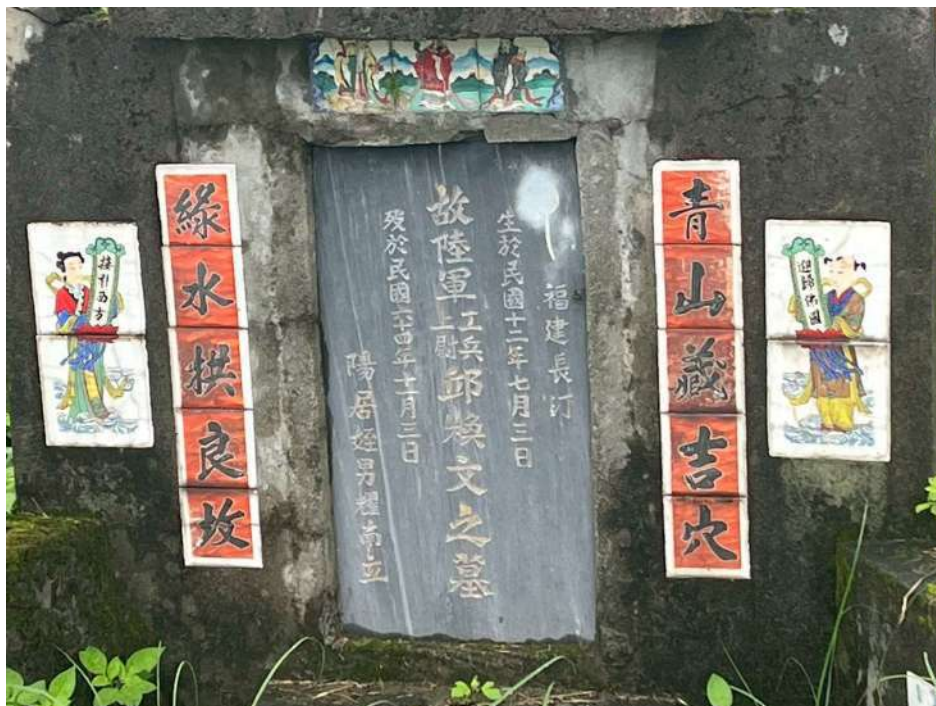 迎歸佛國
青山藏吉穴
福建長汀
生於民國十二年七月三日
故陸軍工兵上尉邱煥文之墓
歿於民國六十四年十一月三日
陽居姪男耀南立
綠水拱良坟
接引西方